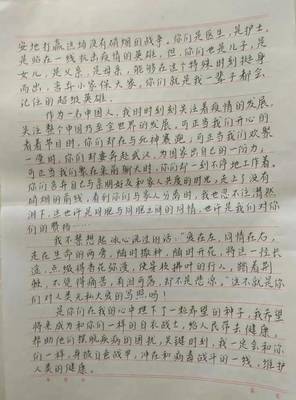 安地打赢这场没有硝烟的战争。你们是医生，是护士，
是站在一线抗击疫情的英雄，但，你们也是儿子，是
女儿，是父亲，是母亲，能够在这个特殊时刻挺身
而出，舍弃小家保大家，你们就是我一辈子都会
记住的超级英雄。
作为一名中国人，我时时刻刻关注着疫情的发展，
关注整个中国乃至全世界的发展。可正当我们开心的
看着节目时，你们却在与死神赛跑；可正当我们欢聚
一堂时，你们却要奔赴武汉，为国家出自己的一份力，
可正当我们聚在亲朋聊天时，你们却一刻不停地工作着。
你们舍弃自己与亲朋好友和家人共度的时光，走上了没有
硝烟的前线，看到你们与家人分离时，我也忍不住潸然
泪下，这也许是同胞与同胞之间的同情，也许是我们对你
们的敬佩……
我不禁想起冰心说过的话：“爱在左，同情在右，
走在生命的两旁，随时撒种，随时开花，将这一径长
途，点缀得香花弥漫，使是拨拂叶的行人，踏着荆
棘，不觉得痛苦，有泪可落，却不是悲凉。”这不就是你
们对人类无私大爱的写照吗！
是你们在我的心中埋下了一粒希望的种子，我希望
将来成为和你们一样的白衣战士，给人民带去健康，
帮助他们摆脱疾病的困扰，关键时刻，我一定会和你
们一样，身披白衣战甲，冲在和病毒战斗的一线，维护
人类的健康。